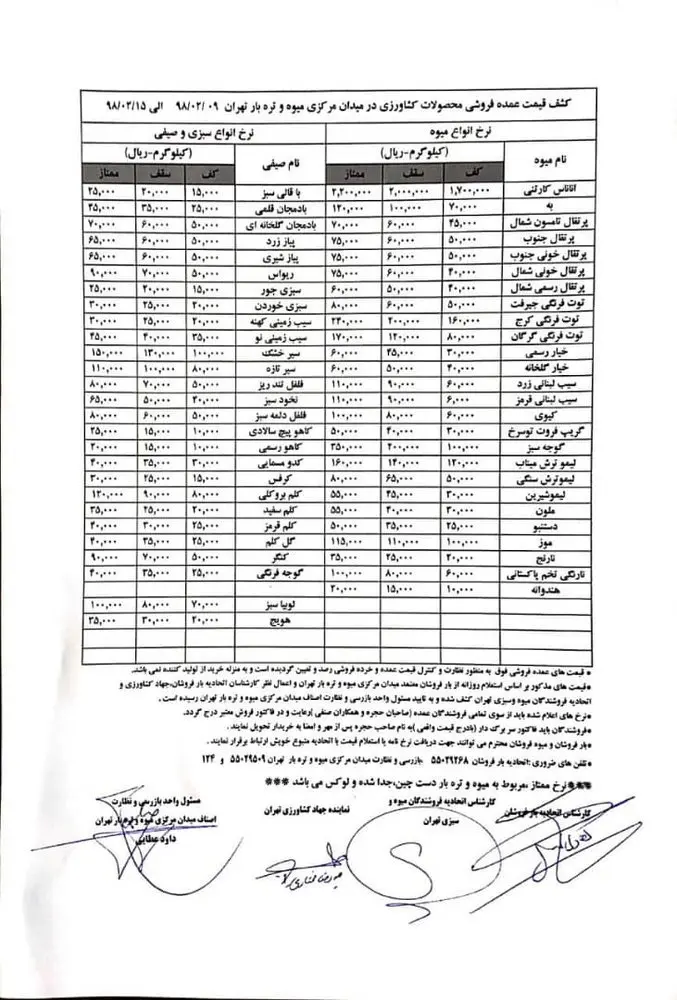 کشف قیمت عمده فروشی محصولات کشاورزی در میدان مرکزی میوه و تره بار تهران ۹۸/۰۲/۰۹ الی ۹۸/۰۲/۱۵
نرخ انواع میوه نرخ انواع سبزی و صیفی
نام میوه (کیلوگرم-ریال) نام صیفی (کیلوگرم-ریال)
کف سقف ممتاز کف سقف ممتاز
آناناس کارتنی ۱,۷۰۰,۰۰۰ ۲,۰۰۰,۰۰۰ ۲,۲۰۰,۰۰۰ باقالی سبز ۱۵,۰۰۰ ۲۰,۰۰۰ ۲۵,۰۰۰
به ۷۰,۰۰۰ ۱۰۰,۰۰۰ ۱۲۰,۰۰۰ بادمجان قلمی ۲۵,۰۰۰ ۳۵,۰۰۰ ۴۵,۰۰۰
پرتقال تامسون شمال ۴۵,۰۰۰ ۶۰,۰۰۰ ۷۰,۰۰۰ بادمجان گلخانه ای ۵۰,۰۰۰ ۶۰,۰۰۰ ۷۰,۰۰۰
پرتقال جنوب ۵۰,۰۰۰ ۶۰,۰۰۰ ۷۵,۰۰۰ پیاز زرد ۵۰,۰۰۰ ۶۰,۰۰۰ ۶۵,۰۰۰
پرتقال خونی جنوب ۵۰,۰۰۰ ۶۰,۰۰۰ ۷۵,۰۰۰ پیاز شیری ۵۰,۰۰۰ ۶۰,۰۰۰ ۶۵,۰۰۰
پرتقال خونی شمال ۴۰,۰۰۰ ۶۰,۰۰۰ ۷۵,۰۰۰ ریواس ۵۰,۰۰۰ ۷۰,۰۰۰ ۹۰,۰۰۰
پرتقال رسمی شمال ۴۰,۰۰۰ ۵۰,۰۰۰ ۶۰,۰۰۰ سبزی جور ۱۵,۰۰۰ ۲۰,۰۰۰ ۲۵,۰۰۰
توت فرنگی جیرفت ۵۰,۰۰۰ ۶۰,۰۰۰ ۸۰,۰۰۰ سبزی خوردن ۲۰,۰۰۰ ۲۵,۰۰۰ ۳۰,۰۰۰
توت فرنگی کرج ۱۶۰,۰۰۰ ۲۰۰,۰۰۰ ۲۴۰,۰۰۰ سیب زمینی کهنه ۲۰,۰۰۰ ۲۵,۰۰۰ ۳۰,۰۰۰
توت فرنگی گرگان ۸۰,۰۰۰ ۱۲۰,۰۰۰ ۱۷۰,۰۰۰ سیب زمینی نو ۴۰,۰۰۰ ۳۵,۰۰۰ ۴۵,۰۰۰
خیار رسمی ۳۰,۰۰۰ ۴۵,۰۰۰ ۶۰,۰۰۰ سیر خشک ۱۰۰,۰۰۰ ۱۳۰,۰۰۰ ۱۵۰,۰۰۰
خیار گلخانه ۴۰,۰۰۰ ۵۰,۰۰۰ ۶۰,۰۰۰ سیر تازه ۸۰,۰۰۰ ۱۰۰,۰۰۰ ۱۱۰,۰۰۰
سیب لبنانی زرد ۶۰,۰۰۰ ۹۰,۰۰۰ ۱۱۰,۰۰۰ فلفل تند ریز ۵۰,۰۰۰ ۷۰,۰۰۰ ۸۰,۰۰۰
سیب لبنانی قرمز ۶,۰۰۰ ۹۰,۰۰۰ ۱۱۰,۰۰۰ نخود سبز ۴۰,۰۰۰ ۵۰,۰۰۰ ۶۵,۰۰۰
کیوی ۶۰,۰۰۰ ۸۰,۰۰۰ ۱۰۰,۰۰۰ فلفل دلمه سبز ۵۰,۰۰۰ ۶۰,۰۰۰ ۸۰,۰۰۰
گریپ فروت توسرخ ۳۰,۰۰۰ ۴۰,۰۰۰ ۵۰,۰۰۰ کاهو پیچ سالادی ۱۰,۰۰۰ ۱۵,۰۰۰ ۲۵,۰۰۰
گوجه سبز ۱۰۰,۰۰۰ ۲۰۰,۰۰۰ ۳۵۰,۰۰۰ کاهو رسمی ۱۰,۰۰۰ ۱۵,۰۰۰ ۲۰,۰۰۰
لیمو ترش میناب ۱۲۰,۰۰۰ ۱۴۰,۰۰۰ ۱۶۰,۰۰۰ کدو مسمایی ۳۰,۰۰۰ ۳۵,۰۰۰ ۴۰,۰۰۰
لیموترش سنگی ۵۰,۰۰۰ ۶۵,۰۰۰ ۸۰,۰۰۰ کرفس ۱۵,۰۰۰ ۲۵,۰۰۰ ۳۰,۰۰۰
لیموشیرین ۳۰,۰۰۰ ۴۵,۰۰۰ ۵۵,۰۰۰ کلم بروکلی ۸۰,۰۰۰ ۹۰,۰۰۰ ۱۲۰,۰۰۰
ملون ۳۰,۰۰۰ ۴۰,۰۰۰ ۵۵,۰۰۰ کلم سفید ۲۰,۰۰۰ ۲۵,۰۰۰ ۳۵,۰۰۰
دستنبو ۲۵,۰۰۰ ۳۵,۰۰۰ ۵۰,۰۰۰ کلم قرمز ۲۵,۰۰۰ ۳۰,۰۰۰ ۴۰,۰۰۰
موز ۱۰۰,۰۰۰ ۱۱۰,۰۰۰ ۱۱۵,۰۰۰ گل کلم ۲۵,۰۰۰ ۳۵,۰۰۰ ۴۰,۰۰۰
نارنج ۲۰,۰۰۰ ۲۵,۰۰۰ ۳۵,۰۰۰ کنگر ۵۰,۰۰۰ ۷۰,۰۰۰ ۹۰,۰۰۰
نارنگی تخم پاکستانی ۶۰,۰۰۰ ۸۰,۰۰۰ ۱۰۰,۰۰۰ گوجه فرنگی ۲۵,۰۰۰ ۳۵,۰۰۰ ۴۰,۰۰۰
هندوانه ۱۰,۰۰۰ ۱۵,۰۰۰ ۲۰,۰۰۰
لوبیا سبز ۷۰,۰۰۰ ۸۰,۰۰۰ ۱۰۰,۰۰۰
هویج ۲۰,۰۰۰ ۳۰,۰۰۰ ۳۵,۰۰۰
* قیمت های عمده فروشی فوق به منظور نظارت و کنترل قیمت عمده و خرده فروشی رصد و تعیین گردیده است و به منزله خرید از تولید کننده نمی باشد.
*قیمت های مذکور بر اساس استعلام روزانه از بار فروشان معتمد میدان مرکزی میوه و تره بار تهران و اعمال نظر کارشناسان اتحادیه بار فروشان،جهاد کشاورزی و
اتحادیه فروشندگان میوه وسبزی تهران کشف شده و به تایید مسئول واحد بازرسی و نظارت اصناف میدان مرکزی میوه و تره بار تهران رسیده است .
*نرخ های اعلام شده باید از سوی تمامی فروشندگان عمده (صاحبان حجره و همکاران صنفی )رعایت و در فاکتور فروش معتبر درج گردد.
*فروشندگان باید فاکتور سر برگ دار (بادرج قیمت واقعی )به نام صاحب حجره پس از مهر و امضا به خریدار تحویل نمایند .
*بار فروشان و میوه فروشان محترم می توانند جهت دریافت نرخ نامه یا استعلام قیمت با اتحادیه متبوع خویش ارتباط برقرار نمایند .
*تلفن های ضروری :اتحادیه بار فروشان ۵۵۰۲۹۲۶۸ بازرسی و نظارت میدان مرکزی میوه و تره بار تهران ۵۵۰۲۹۵۰۹ و ۱۲۴
***نرخ ممتاز ،مربوط به میوه و تره بار دست چین،جدا شده و لوکس می باشد ***
کارشناس اتحادیه بار فروشان کارشناس اتحادیه فروشندگان میوه و سبزی تهران نماینده جهاد کشاورزی تهران مسئول واحد بازرسی و نظارت
اصناف میدان مرکزی میوه و تره بار تهران
داود عطایی